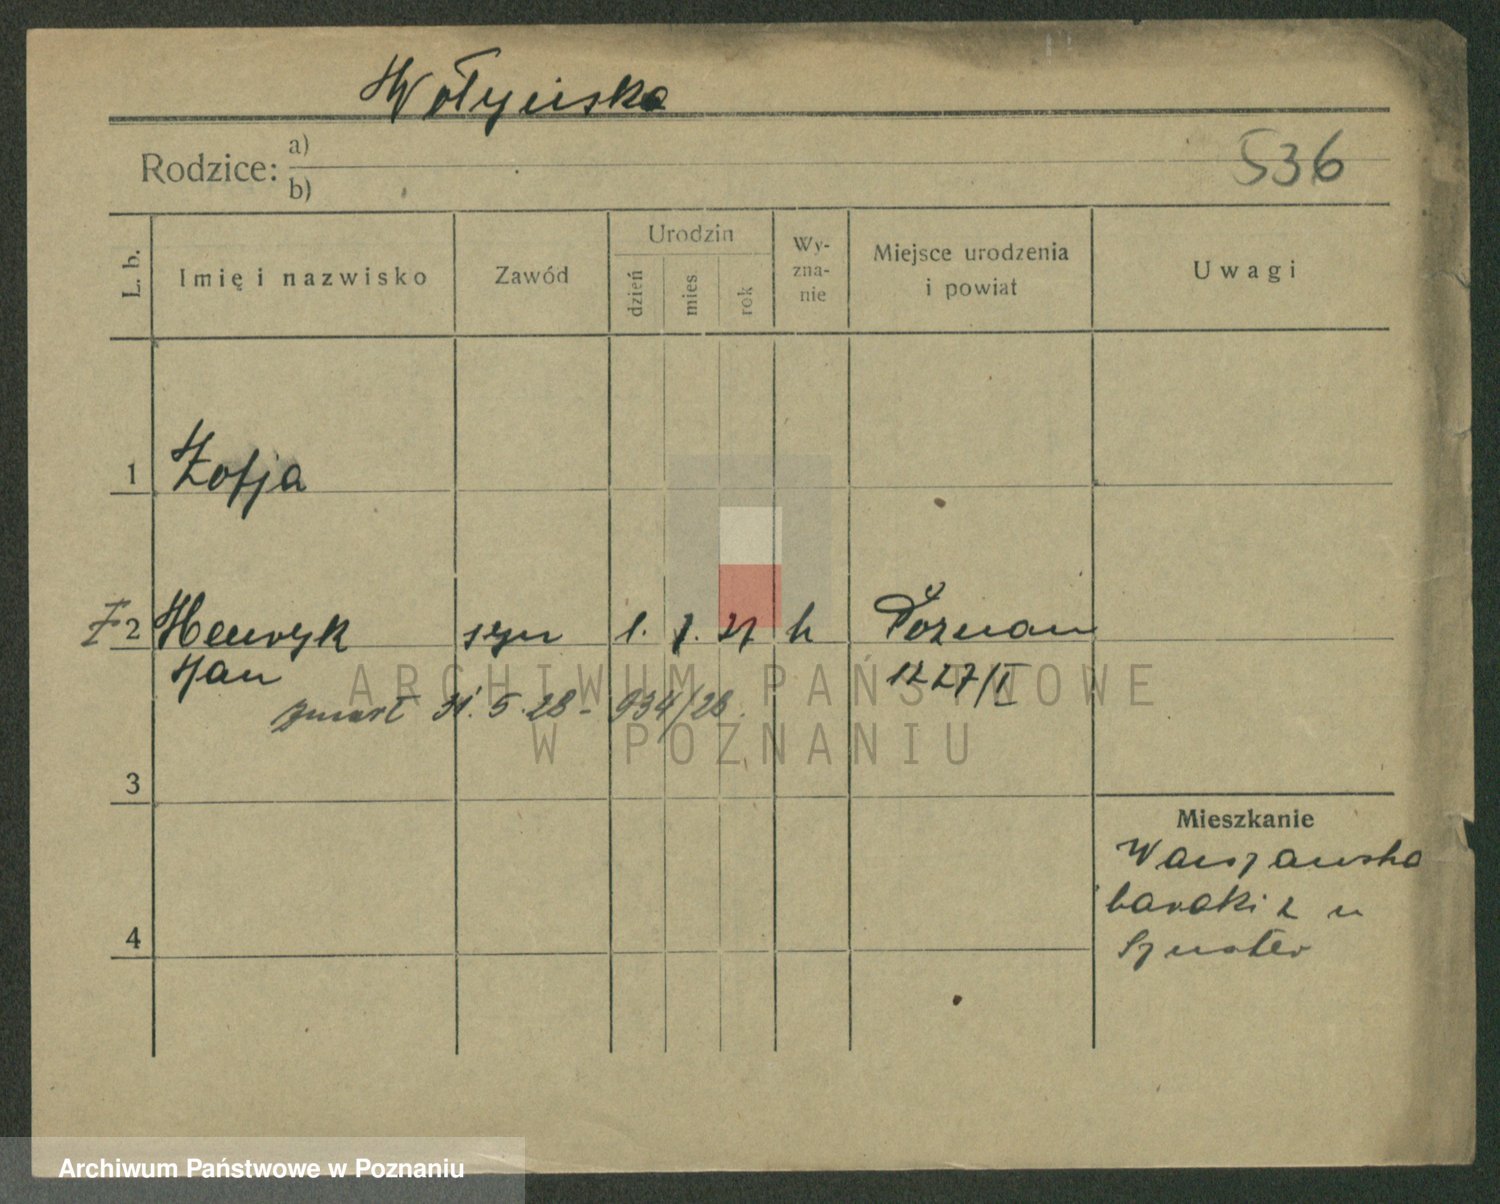 Wołyńska
Rodzice: a)
b)
536
L. b.
Imię i nazwisko
Zawód
Urodzin
dzień
mies.
rok
Wy-
zna-
nie
Miejsce urodzenia
i powiat
Uwagi
1 Zofja
2 Henryk syn 1. 7. 27 k Poznań
Jan 1227/I
zmarł 31.5.28 - 934/28.
3
4
Mieszkanie
Warszawska
baraki 2 u
ARCHIWUM PAŃSTWOWE
W POZNANIU
Archiwum Państwowe w Poznaniu